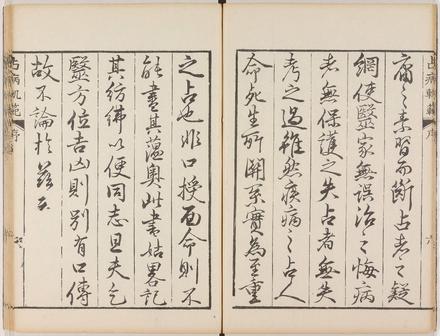 占病軌範 序 六
痛之素習而斷占者之疑
網使醫家無誤治之悔病
者無保護之失占者無失
考之過雖然疾病之占人
命死生所關系實為至重
之占也非口授面命則不
能盡其蘊奧此書姑畧記
其彷彿以便同志且夫乞
醫方位吉凶則別有口傳
故不論於茲云
占病軌範 序